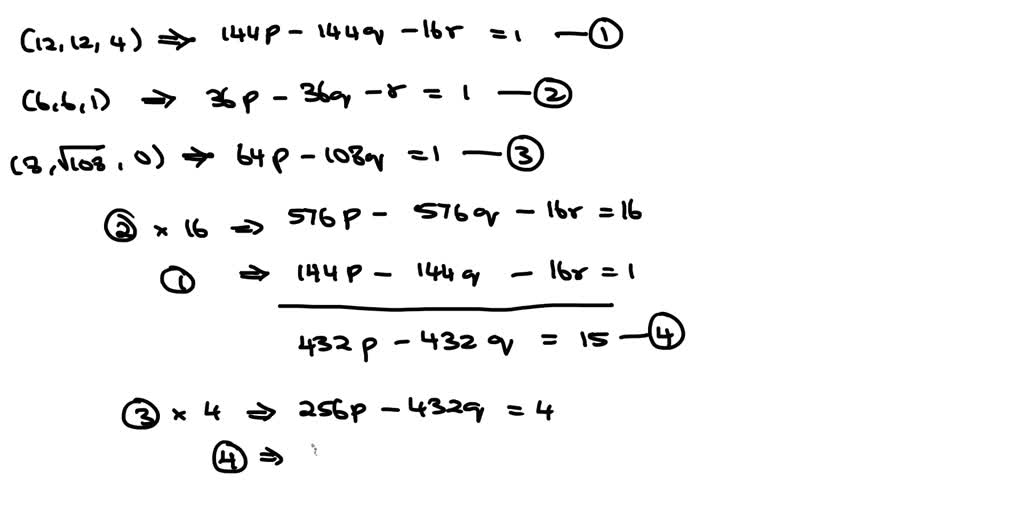 (12, 12, 4) ⇒ 144p - 144q - 16r = 1 — ①
(6, 6, 1) ⇒ 36p - 36q - r = 1 — ②
(8, √108, 0) ⇒ 64p - 108q = 1 — ③
② × 16 ⇒ 576p - 576q - 16r = 16
① ⇒ 144p - 144q - 16r = 1
432p - 432q = 15 — ④
③ × 4 ⇒ 256p - 432q = 4
④ ⇒